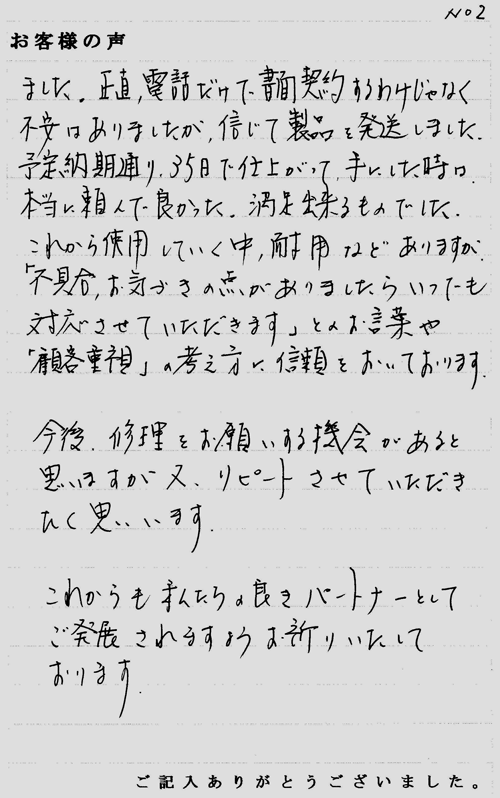 No2
お客様の声
ました。正直,電話だけで書面契約するわけじゃなく
不安はありましたが,信じて製品を発送しました.
予定納期通り.35日で仕上がって,手にした時は
本当に頼んで良かった.満足出来るものでした.
これから使用していく中,耐用などありますが.
「不具合,お気づきの点がありましたらいつでも
対応させていただきます」とのお言葉や
「顧客重視」の考え方に信頼をおいております.
今後.修理をお願いする機会があると
思いますが又.リピートさせていただき
たく思います.
これからも私たちの良きパートナーとして
ご発展されますようお祈りいたして
おります.
ご記入ありがとうございました。